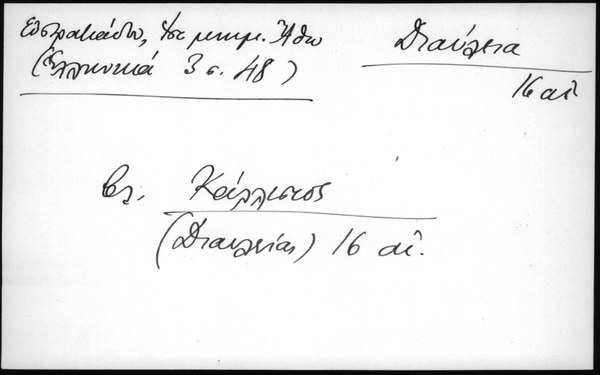 Εὐστρατιάδου, Ἱστ. μνημ. Ἄθω
(Ἑλληνικά 3 σ. 48)
Διαύλεια
16 αἰ.
βλ. Κάλλιστος
(Διαυλείας) 16 αἰ.